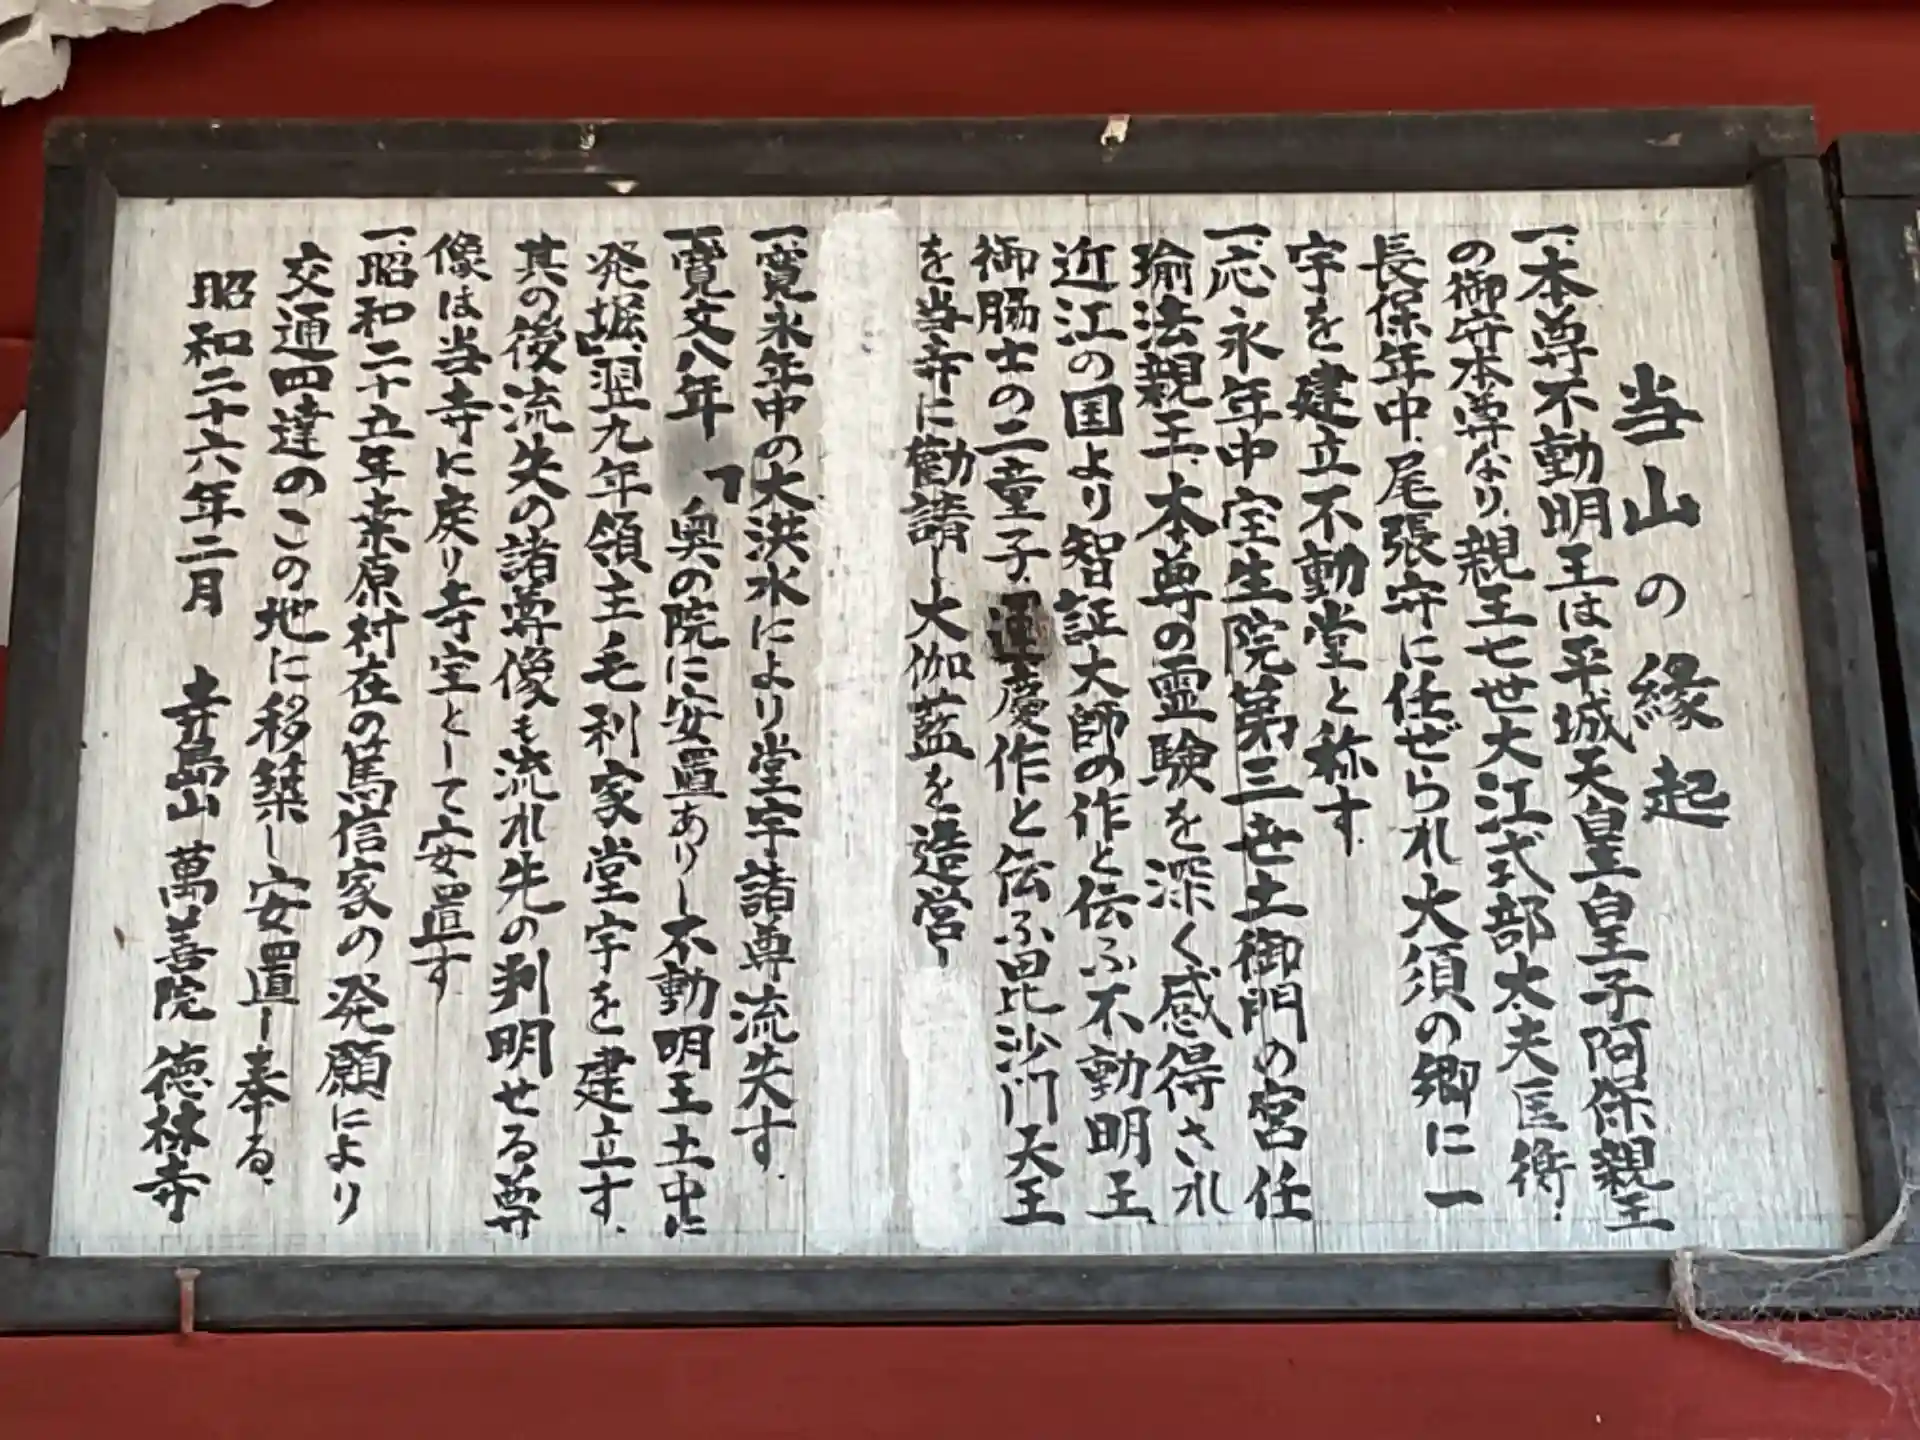 当山の縁起
一、本尊不動明王は平城天皇皇子阿保親王
の御守本尊なり、親王七世大江式部太夫匡衡、
長保年中、尾張守に任ぜられ大須の郷に一
宇を建立不動堂と称す、
一、応永年中宝生院第三世土御門の宮任
瑜法親王、本尊の霊験を深く感得され
近江の国より智証大師の作と伝ふ不動明王、
御脇士の二童子、運慶作と伝ふ毘沙門天王
を当寺に勧請し大伽藍を造営し
一、寛永年中の大洪水により堂宇諸尊流失す、
一、寛文八年 奥の院に安置ありし不動明王土中に
発掘、翌九年領主毛利家堂宇を建立す、
其の後流失の諸尊像も流れ先の判明せる尊
像は当寺に戻り寺宝として安置す
一、昭和二十五年桑原村在の篤信家の発願により
交通四達のこの地に移築し安置し奉る、
昭和二十六年二月 寺島山 萬善院 徳林寺